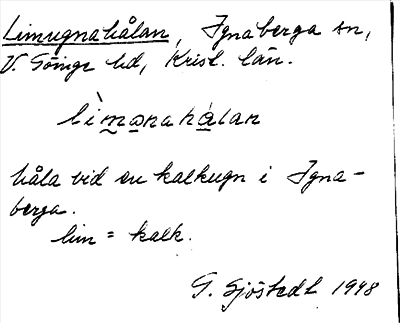 Limugnahålan, Ignaberga sn,
V. Göinge hd, Krist. län.
lìmənahålan
håla vid en kalkugn i Igna-
berga.
lim = kalk.
G. Sjöstedt 1948